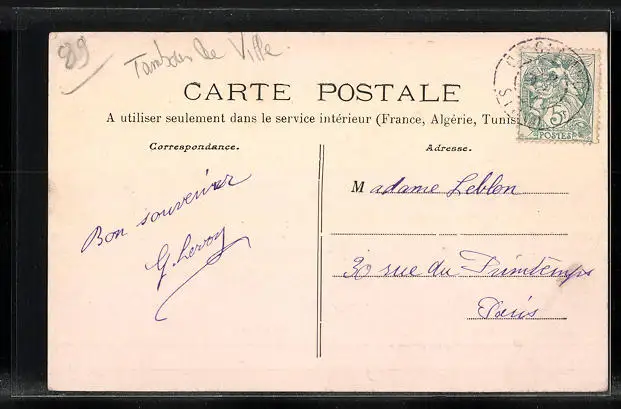 89
Tambour de Ville.
CARTE POSTALE
A utiliser seulement dans le service intérieur (France, Algérie, Tunis
Correspondance.
Bon souvenir
G Leroy
Adresse.
Madame Leblon
30 rue du Printemps
Paris
5c
POSTES